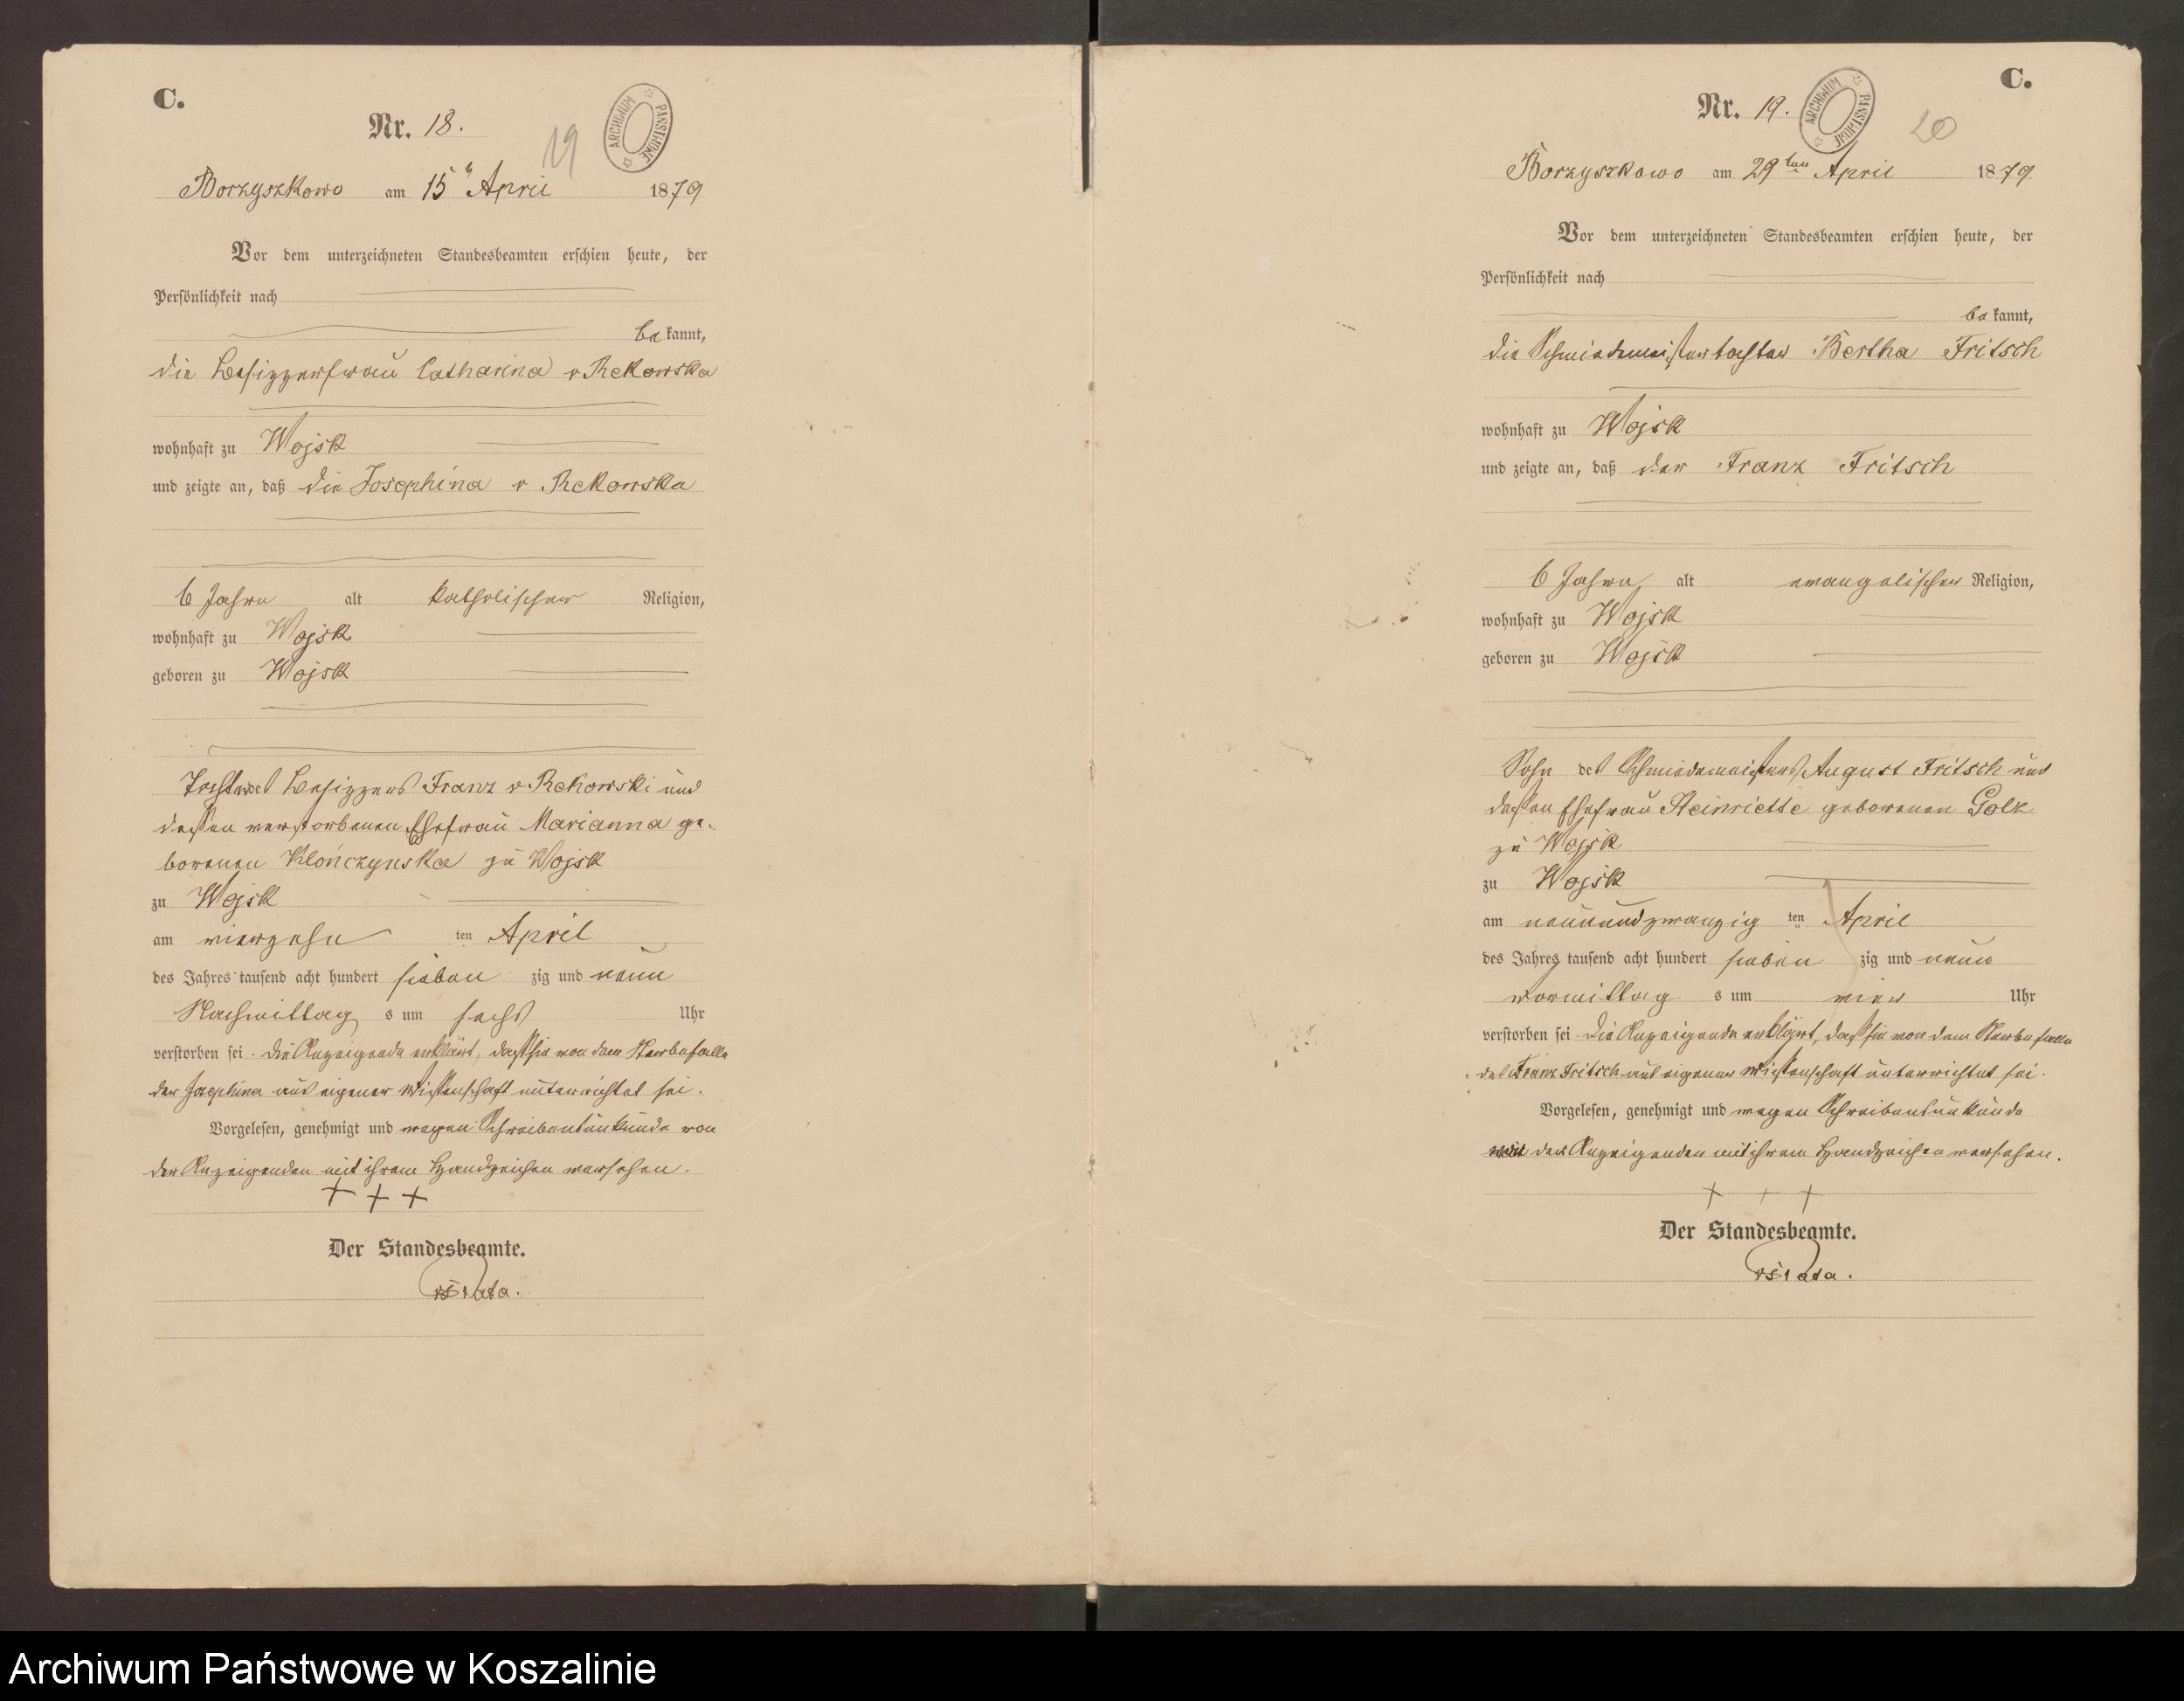 C.
Nr. 18.
19
ARCHIWUM PAŃSTWOWE
Borzyszkowo am 15 April 1879
Vor dem unterzeichneten Standesbeamten erschien heute, der
Persönlichkeit nach
be kannt,
die Besizzerfrau Catharina v Rekowska
wohnhaft zu Wojsk
und zeigte an, daß die Josephina v Rekowska
6 Jahre alt katholischer Religion,
wohnhaft zu Wojsk
geboren zu Wojsk
Tochter des Besizzers Franz v Rekowski und
dessen verstorbenen Ehefrau Marianna ge-
borenen Klończynska zu Wojsk
zu Wojsk
am vierzehn ten April
des Jahres tausend acht hundert sieben zig und neun
Nachmittag s um sechs Uhr
verstorben sei. Die Anzeigende erklärt, daß sie von dem Sterbefalle
der Josephina aus eigener Wissenschaft unterrichtet sei.
Vorgelesen, genehmigt und wegen Schreibensunkunde von
der Anzeigenden mit ihrem Handzeichen versehen.
+ + +
Der Standesbeamte.
C.
Nr. 19.
ARCHIWUM PAŃSTWOWE
20
Borzyszkowo am 29ten April 1879
Vor dem unterzeichneten Standesbeamten erschien heute, der
Persönlichkeit nach
be kannt,
die Schmiedemeistertochter Bertha Fritsch
wohnhaft zu Wojsk
und zeigte an, daß der Franz Fritsch
6 Jahre alt evangelischer Religion,
wohnhaft zu Wojsk
geboren zu Wojsk
Sohn des Schmiedemeisters August Fritsch und
dessen Ehefrau Heinriette geborenen Golz
zu Wojsk
zu Wojsk
am neunundzwanzig ten April
des Jahres tausend acht hundert sieben zig und neun
vormittag s um vier Uhr
verstorben sei. Die Anzeigende erklärt, daß sie von dem Sterbefalle
des Franz Fritsch aus eigener Wissenschaft unterrichtet sei.
Vorgelesen, genehmigt und wegen Schreibensunkunde
der Anzeigenden mit ihrem Handzeichen versehen.
+ + +
Der Standesbeamte.
Archiwum Państwowe w Koszalinie